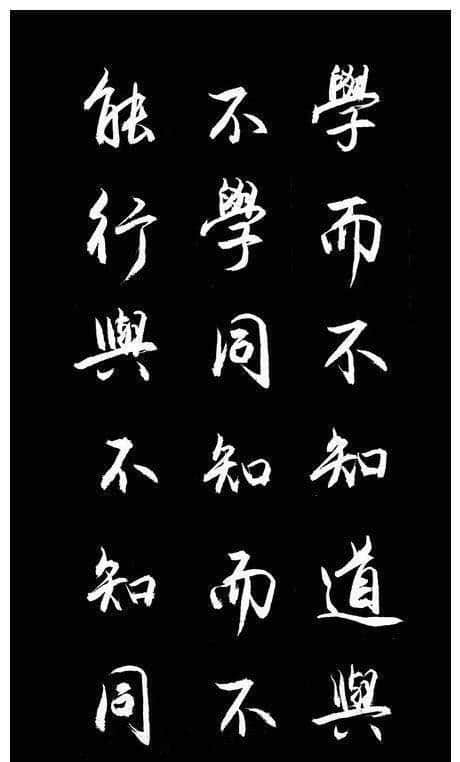 學而不知道與
不學同知而不
能行與不知同